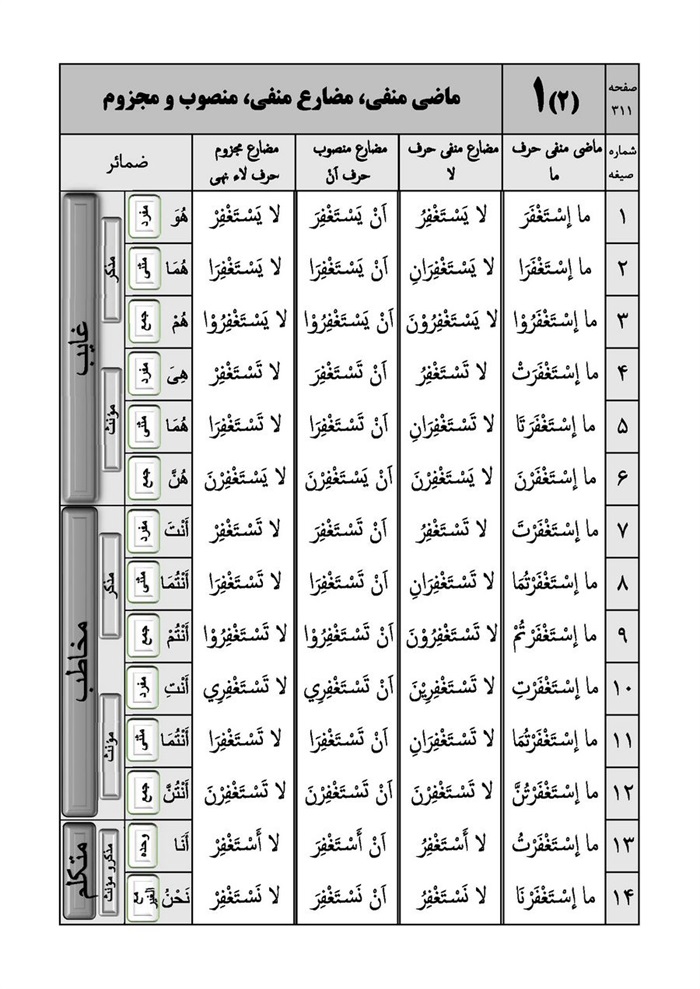 صفحه ۳۱۱ ۱(۲) ماضی منفی، مضارع منفی، منصوب و مجزوم
شماره صیغه ماضی منفی حرف ما مضارع منفی حرف لا مضارع منصوب حرف اَنْ مضارع مجزوم حرف لاء نهی ضمائر
۱ ما اِسْتَغْفَرَ لا یَسْتَغْفِرُ اَنْ یَسْتَغْفِرَ لا یَسْتَغْفِرْ هُوَ مفرد مذکر غایب
۲ ما اِسْتَغْفَرَا لا یَسْتَغْفِرَانِ اَنْ یَسْتَغْفِرَا لا یَسْتَغْفِرَا هُمَا مثنی
۳ ما اِسْتَغْفَرُوْا لا یَسْتَغْفِرُونَ اَنْ یَسْتَغْفِرُوْا لا یَسْتَغْفِرُوْا هُمْ جمع
۴ ما اِسْتَغْفَرَتْ لا تَسْتَغْفِرُ اَنْ تَسْتَغْفِرَ لا تَسْتَغْفِرْ هِیَ مفرد مؤنث
۵ ما اِسْتَغْفَرَتَا لا تَسْتَغْفِرَانِ اَنْ تَسْتَغْفِرَا لا تَسْتَغْفِرَا هُمَا مثنی
۶ ما اِسْتَغْفَرْنَ لا یَسْتَغْفِرْنَ اَنْ یَسْتَغْفِرْنَ لا یَسْتَغْفِرْنَ هُنَّ جمع
۷ ما اِسْتَغْفَرْتَ لا تَسْتَغْفِرُ اَنْ تَسْتَغْفِرَ لا تَسْتَغْفِرْ أَنْتَ مفرد مذکر مخاطب
۸ ما اِسْتَغْفَرْتُمَا لا تَسْتَغْفِرَانِ اَنْ تَسْتَغْفِرَا لا تَسْتَغْفِرَا أَنْتُمَا مثنی
۹ ما اِسْتَغْفَرْتُمْ لا تَسْتَغْفِرُوْنَ اَنْ تَسْتَغْفِرُوْا لا تَسْتَغْفِرُوْا أَنْتُمْ جمع
۱۰ ما اِسْتَغْفَرْتِ لا تَسْتَغْفِرِیْنَ اَنْ تَسْتَغْفِرِي لا تَسْتَغْفِرِي أَنْتِ مفرد مؤنث
۱۱ ما اِسْتَغْفَرْتُمَا لا تَسْتَغْفِرَانِ اَنْ تَسْتَغْفِرَا لا تَسْتَغْفِرَا أَنْتُمَا مثنی
۱۲ ما اِسْتَغْفَرْتُنَّ لا تَسْتَغْفِرْنَ اَنْ تَسْتَغْفِرْنَ لا تَسْتَغْفِرْنَ أَنْتُنَّ جمع
۱۳ ما اِسْتَغْفَرْتُ لا أَسْتَغْفِرُ اَنْ أَسْتَغْفِرَ لا أَسْتَغْفِرْ أَنَا وحده مذکر و مؤنث متکلم
۱۴ ما اِسْتَغْفَرْنَا لا نَسْتَغْفِرُ اَنْ نَسْتَغْفِرَ لا نَسْتَغْفِرْ نَحْنُ مع الغیر